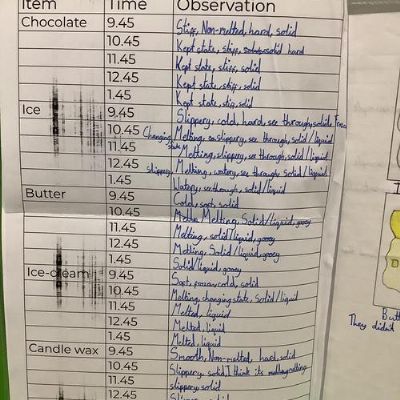 Item Time Observation
Chocolate 9.45 Stiff, Non-melted, hard, solid
10.45 Kept state, stiff, solid hard
11.45 Kept state, stiff, solid
12.45 Kept state, stiff, solid
1.45 Kept state, stiff, solid
Ice 9.45 Slippery, cold, hard, see through, solid,
10.45 Changing state Melting, slippery, see through, solid/liquid
11.45 Melting, slippery, see through, solid/liquid
12.45 slippery Melting, watery, see through Solid/liquid
1.45 Watery, seethrough, solid/liquid
Butter 9.45 Cold, soft, solid
10.45 Melting, Solid/liquid, gooey
11.45 Melting, solid/liquid, gooey
12.45 Melting, Solid/liquid, gooey
1.45 Solid/liquid, gooey
Ice-cream 9.45 Soft, frozen, cold, solid
10.45 Melting, changing state, solid/liquid
11.45 Melted, liquid
12.45 Melted, liquid
1.45 Melted, liquid
Candle wax 9.45 Smooth, Non-melted, hard, solid
10.45 Slippery, solid, I think its melting
11.45 slippery, solid
12.45 Slippery, solid
1.45
Butt
They didn't